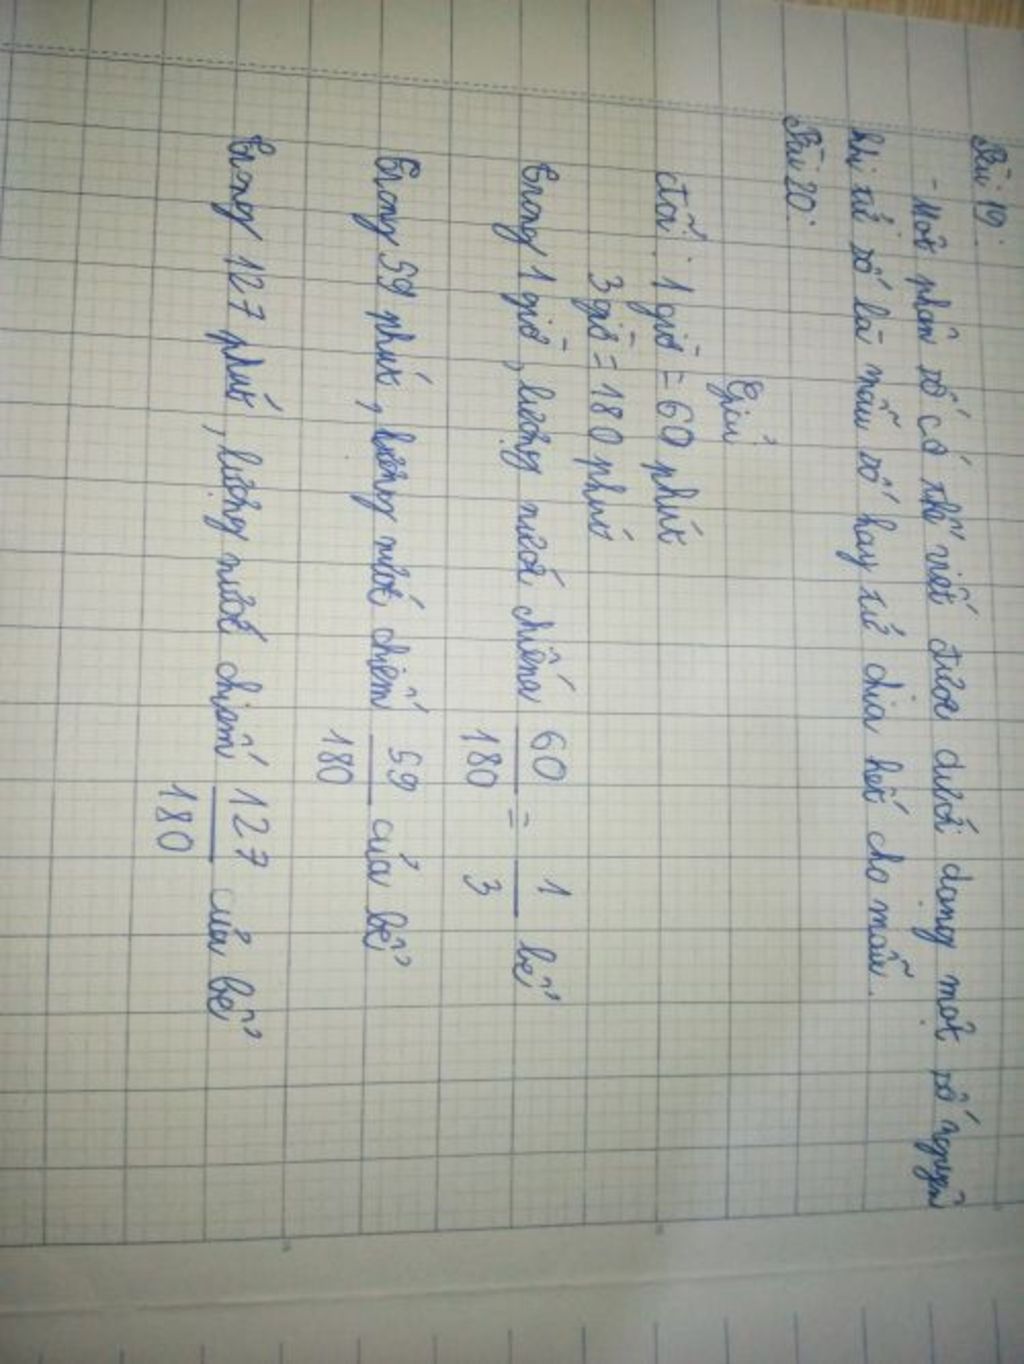 Bài 19:
- Một phân số có thể viết được dưới dạng một số nguyên
khi tử số là mẫu số hay tử chia hết cho mẫu.
Bài 20:
Giải
Đổi: 1 giờ = 60 phút
3 giờ = 180 phút
Trong 1 giờ, lượng nước chiếm 60/180 = 1/3 bể
Trong 59 phút, lượng nước chiếm 59/180 của bể
Trong 127 phút, lượng nước chiếm 127/180 của bể